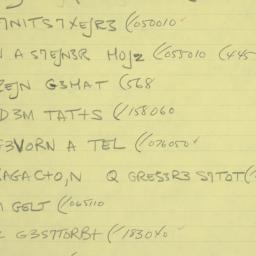 7NITS7XEJR3 (/050010 ✓
N A S7EJN3R HOJ2 (/055010 (445
ZEJN G3HAT (568
D3M TAT+S (/158060
F3VORN A TEL (/076050 ✓
AGAC+O,N Q GRESSR3 S7TOT(
GELT (/065110
G3S7TORB+ (/183040 ✓